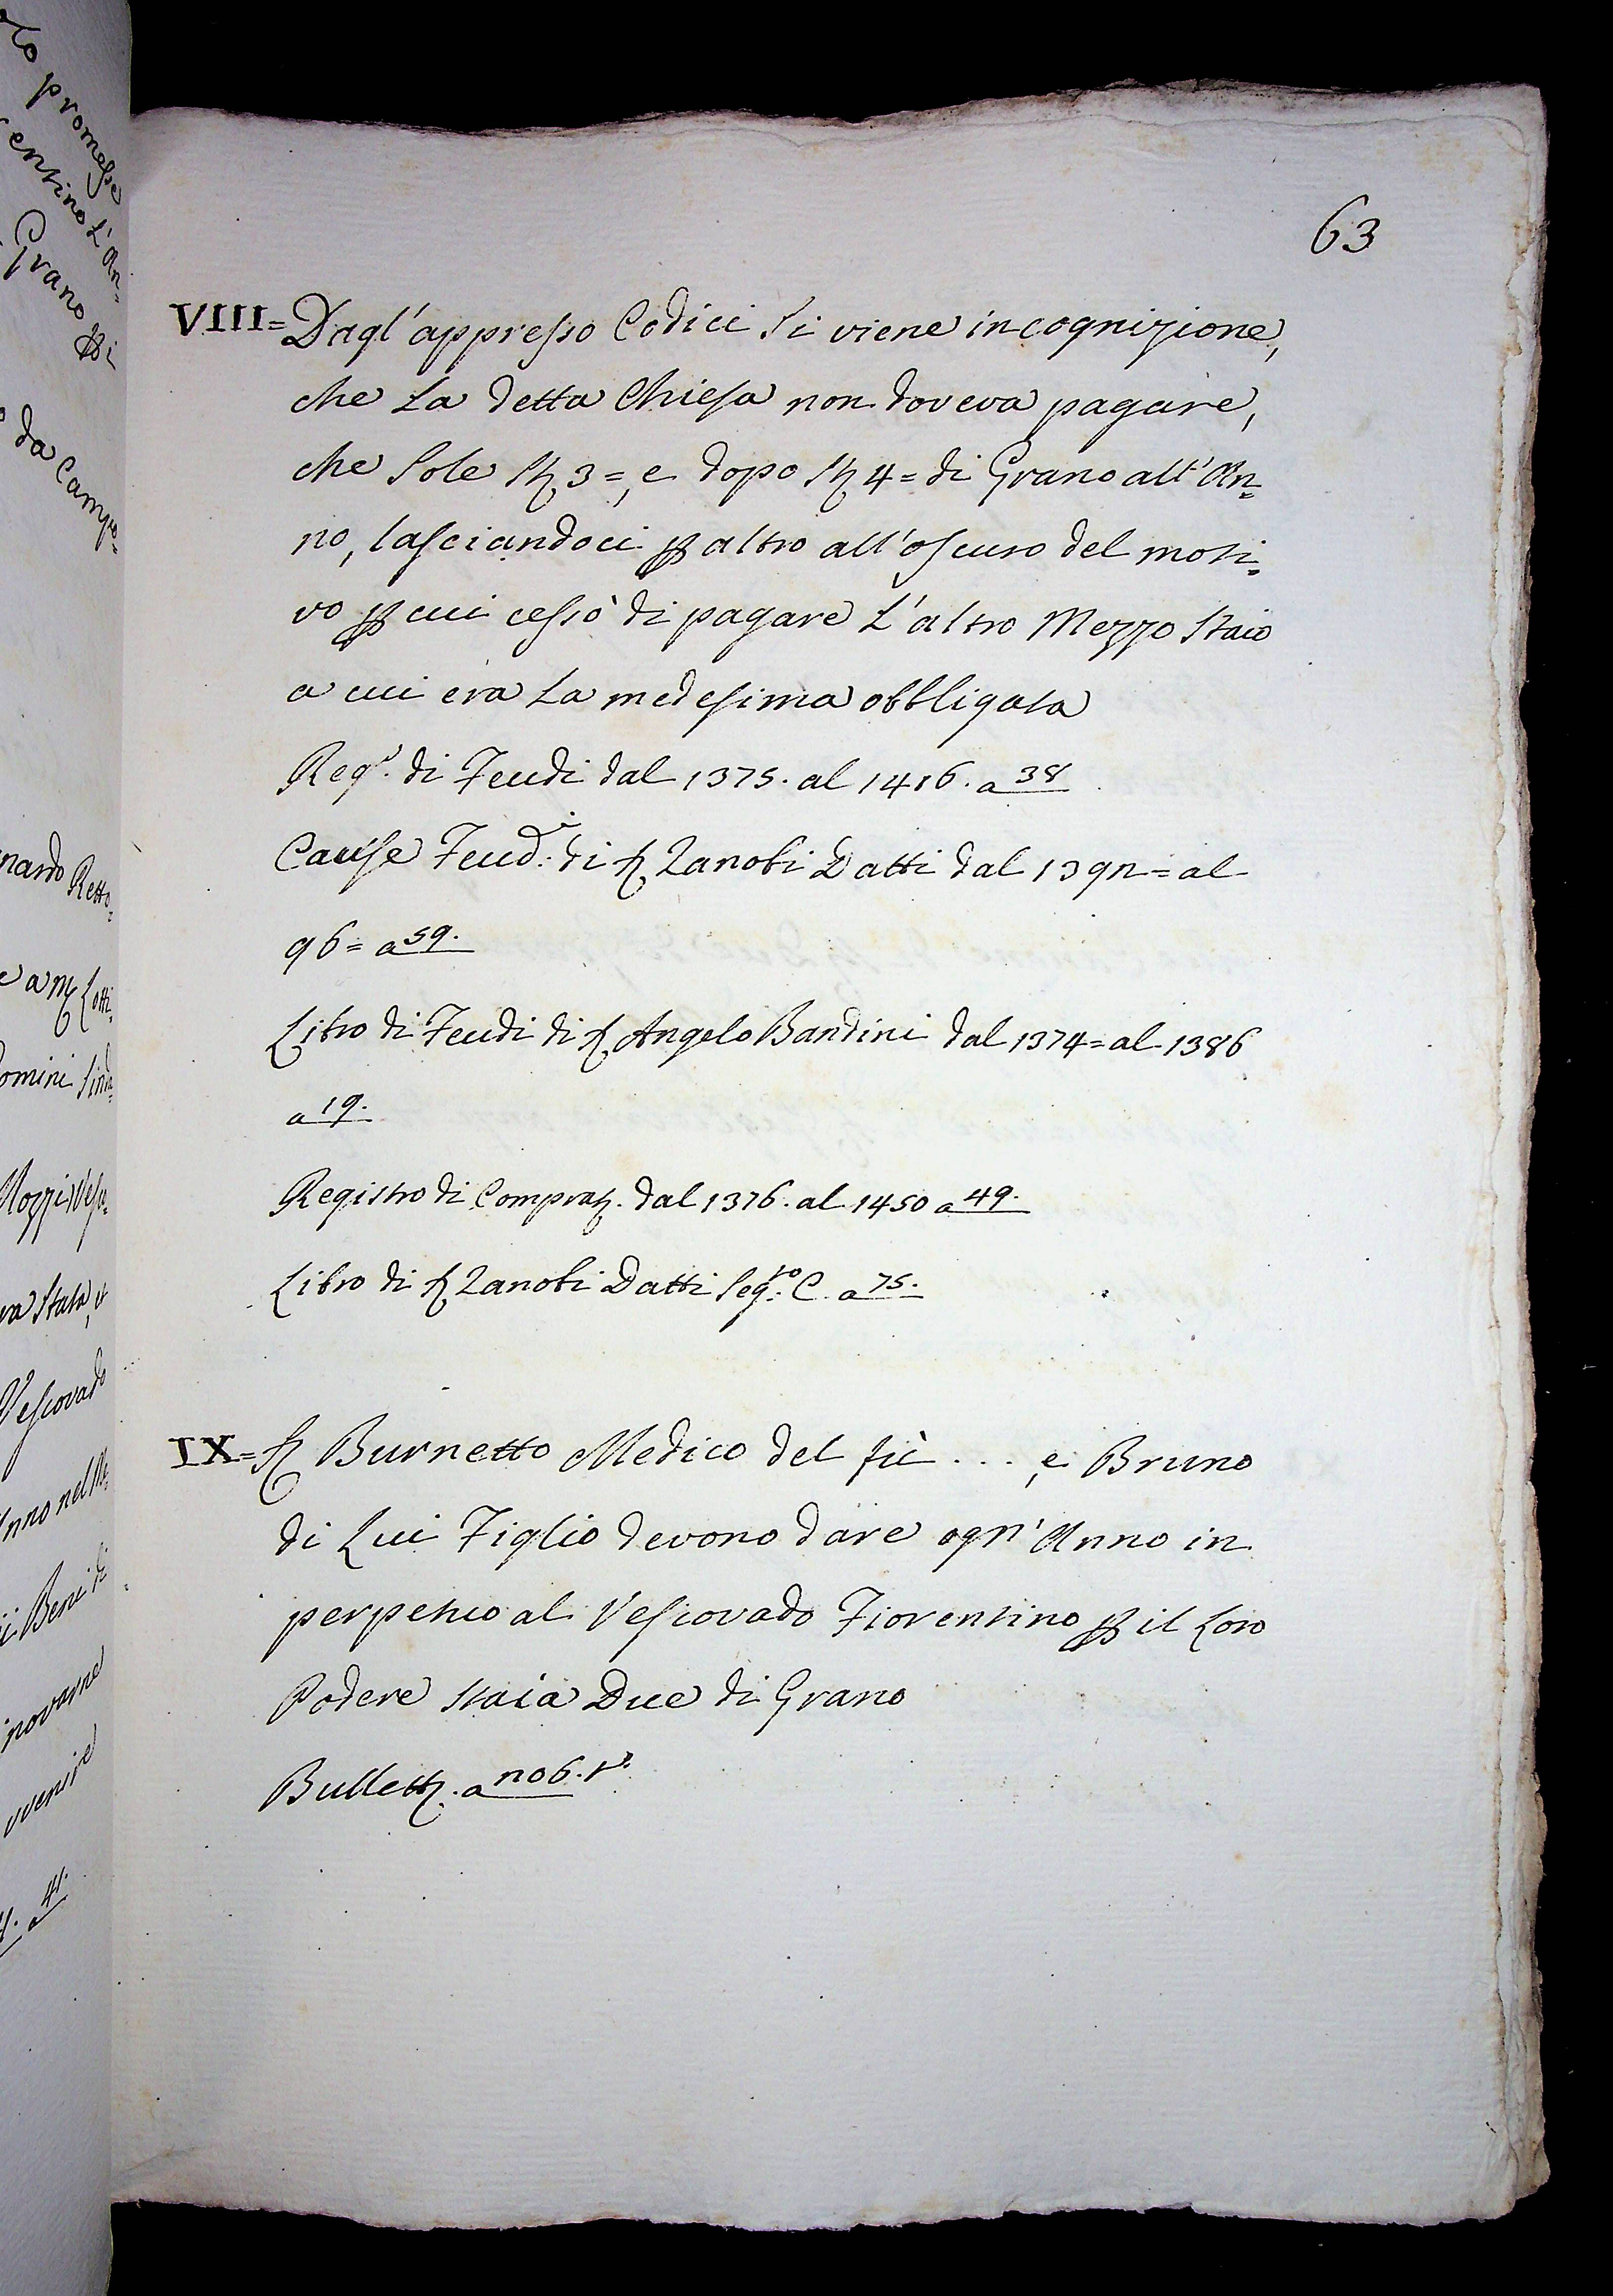 63
VIII= Dagl'appresso Codici si viene in cognizione,
che La detta Chiesa non doveva pagare,
che sole Sta 3=, e dopo Sta 4= di Grano all'An=
no, lasciandoci per altro all'oscuro del moti=
vo per cui cessò di pagare L'altro Mezzo Staio
a cui era La medesima obbligata
Reg.º di Feudi dal 1375. al 1416. a 38
Cause Feud.i di S. Zanobi Datti dal 1392= al
96= a 59.
Libro di Feudi di S. Angelo Bandini dal 1374= al 1386
a 19.
Registro di Comprat. dal 1376. al 1450 a 49.
Libro di S. Zanobi Datti Seg.to C. a 75.
IX= S. Burnetto Medico del fù ... e Bruno
di Lui Figlio devono dare ogn'Anno in
perpetuo al Vescovado Fiorentino per il Loro
Podere staia Due di Grano
Bullett. a 206. tº.